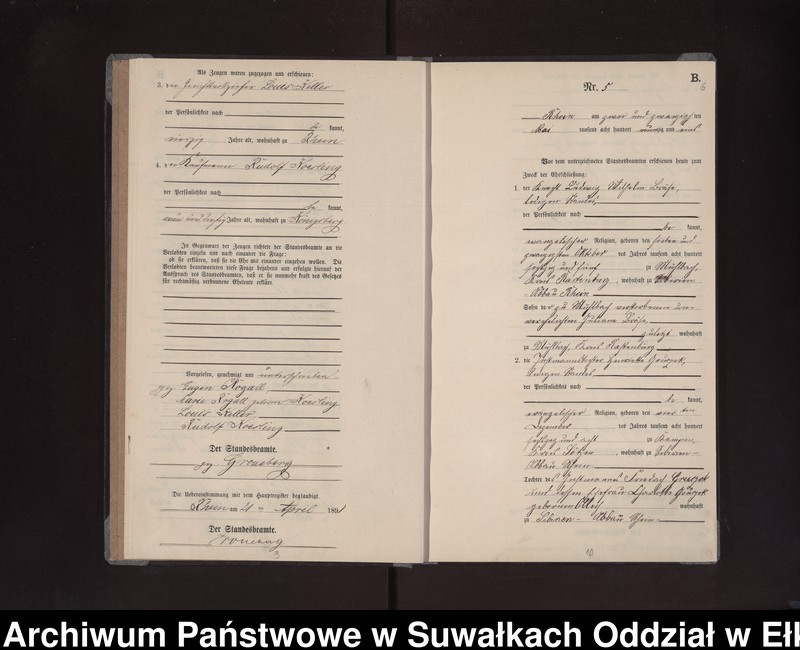 Als Zeugen waren zugezogen und erschienen:
3. der Gerichtsvollzieher Louis Keller
der Persönlichkeit nach
be kannt,
vierzig Jahre alt, wohnhaft zu Rhein
4. der Kaufmann Rudolf Koesling
der Persönlichkeit nach
be kannt,
Jahre alt, wohnhaft zu Königsberg
In Gegenwart der Zeugen richtete der Standesbeamte an die
Verlobten einzeln und nach einander die Frage:
ob sie erklären, daß sie die Ehe mit einander eingehen wollen. Die
Verlobten beantworteten diese Frage bejahend und erfolgte hierauf der
Ausspruch des Standesbeamten, daß er sie nunmehr kraft des Gesetzes
für rechtmäßig verbundene Eheleute erkläre.
Vorgelesen, genehmigt und unterschrieben
gez. Eugen Rogall
Marie Rogall geborene Koesling
Louis Keller
Rudolf Koesling
Der Standesbeamte.
gez. Gronsberg
Die Uebereinstimmung mit dem Hauptregister beglaubigt.
Rhein am 21 ten April 1891
Der Standesbeamte.
B.
6
Nr. 5
Rhein am zwei und zwanzig ten
Mai tausend acht hundert neunzig und eins
Vor dem unterzeichneten Standesbeamten erschienen heute zum
Zweck der Eheschließung:
1. der Knecht Ludwig Wilhelm
ledigen Standes,
der Persönlichkeit nach
be kannt,
evangelischer Religion, geboren den und
zwanzigsten Oktober des Jahres tausend acht hundert
sechzig und fünf zu Mühlbach,
Kreis Rastenburg, wohnhaft zu
Abbau Rhein
Sohn der zu Mühlbach verstorbenen unverehelichten
zuletzt wohnhaft
zu Mühlbach, Kreis Rastenburg
2. die Instmannstochter Henriette
ledigen Standes
der Persönlichkeit nach
be kannt,
evangelischer Religion, geboren den ten
Dezember des Jahres tausend acht hundert
sechzig und acht zu Kampen,
Kreis Lötzen, wohnhaft zu
Abbau Rhein
Tochter des Instmanns Friedrich
und dessen Ehefrau Charlotte
geborenen wohnhaft
zu Abbau Rhein
10
Archiwum Państwowe w Suwałkach Oddział w Ełk